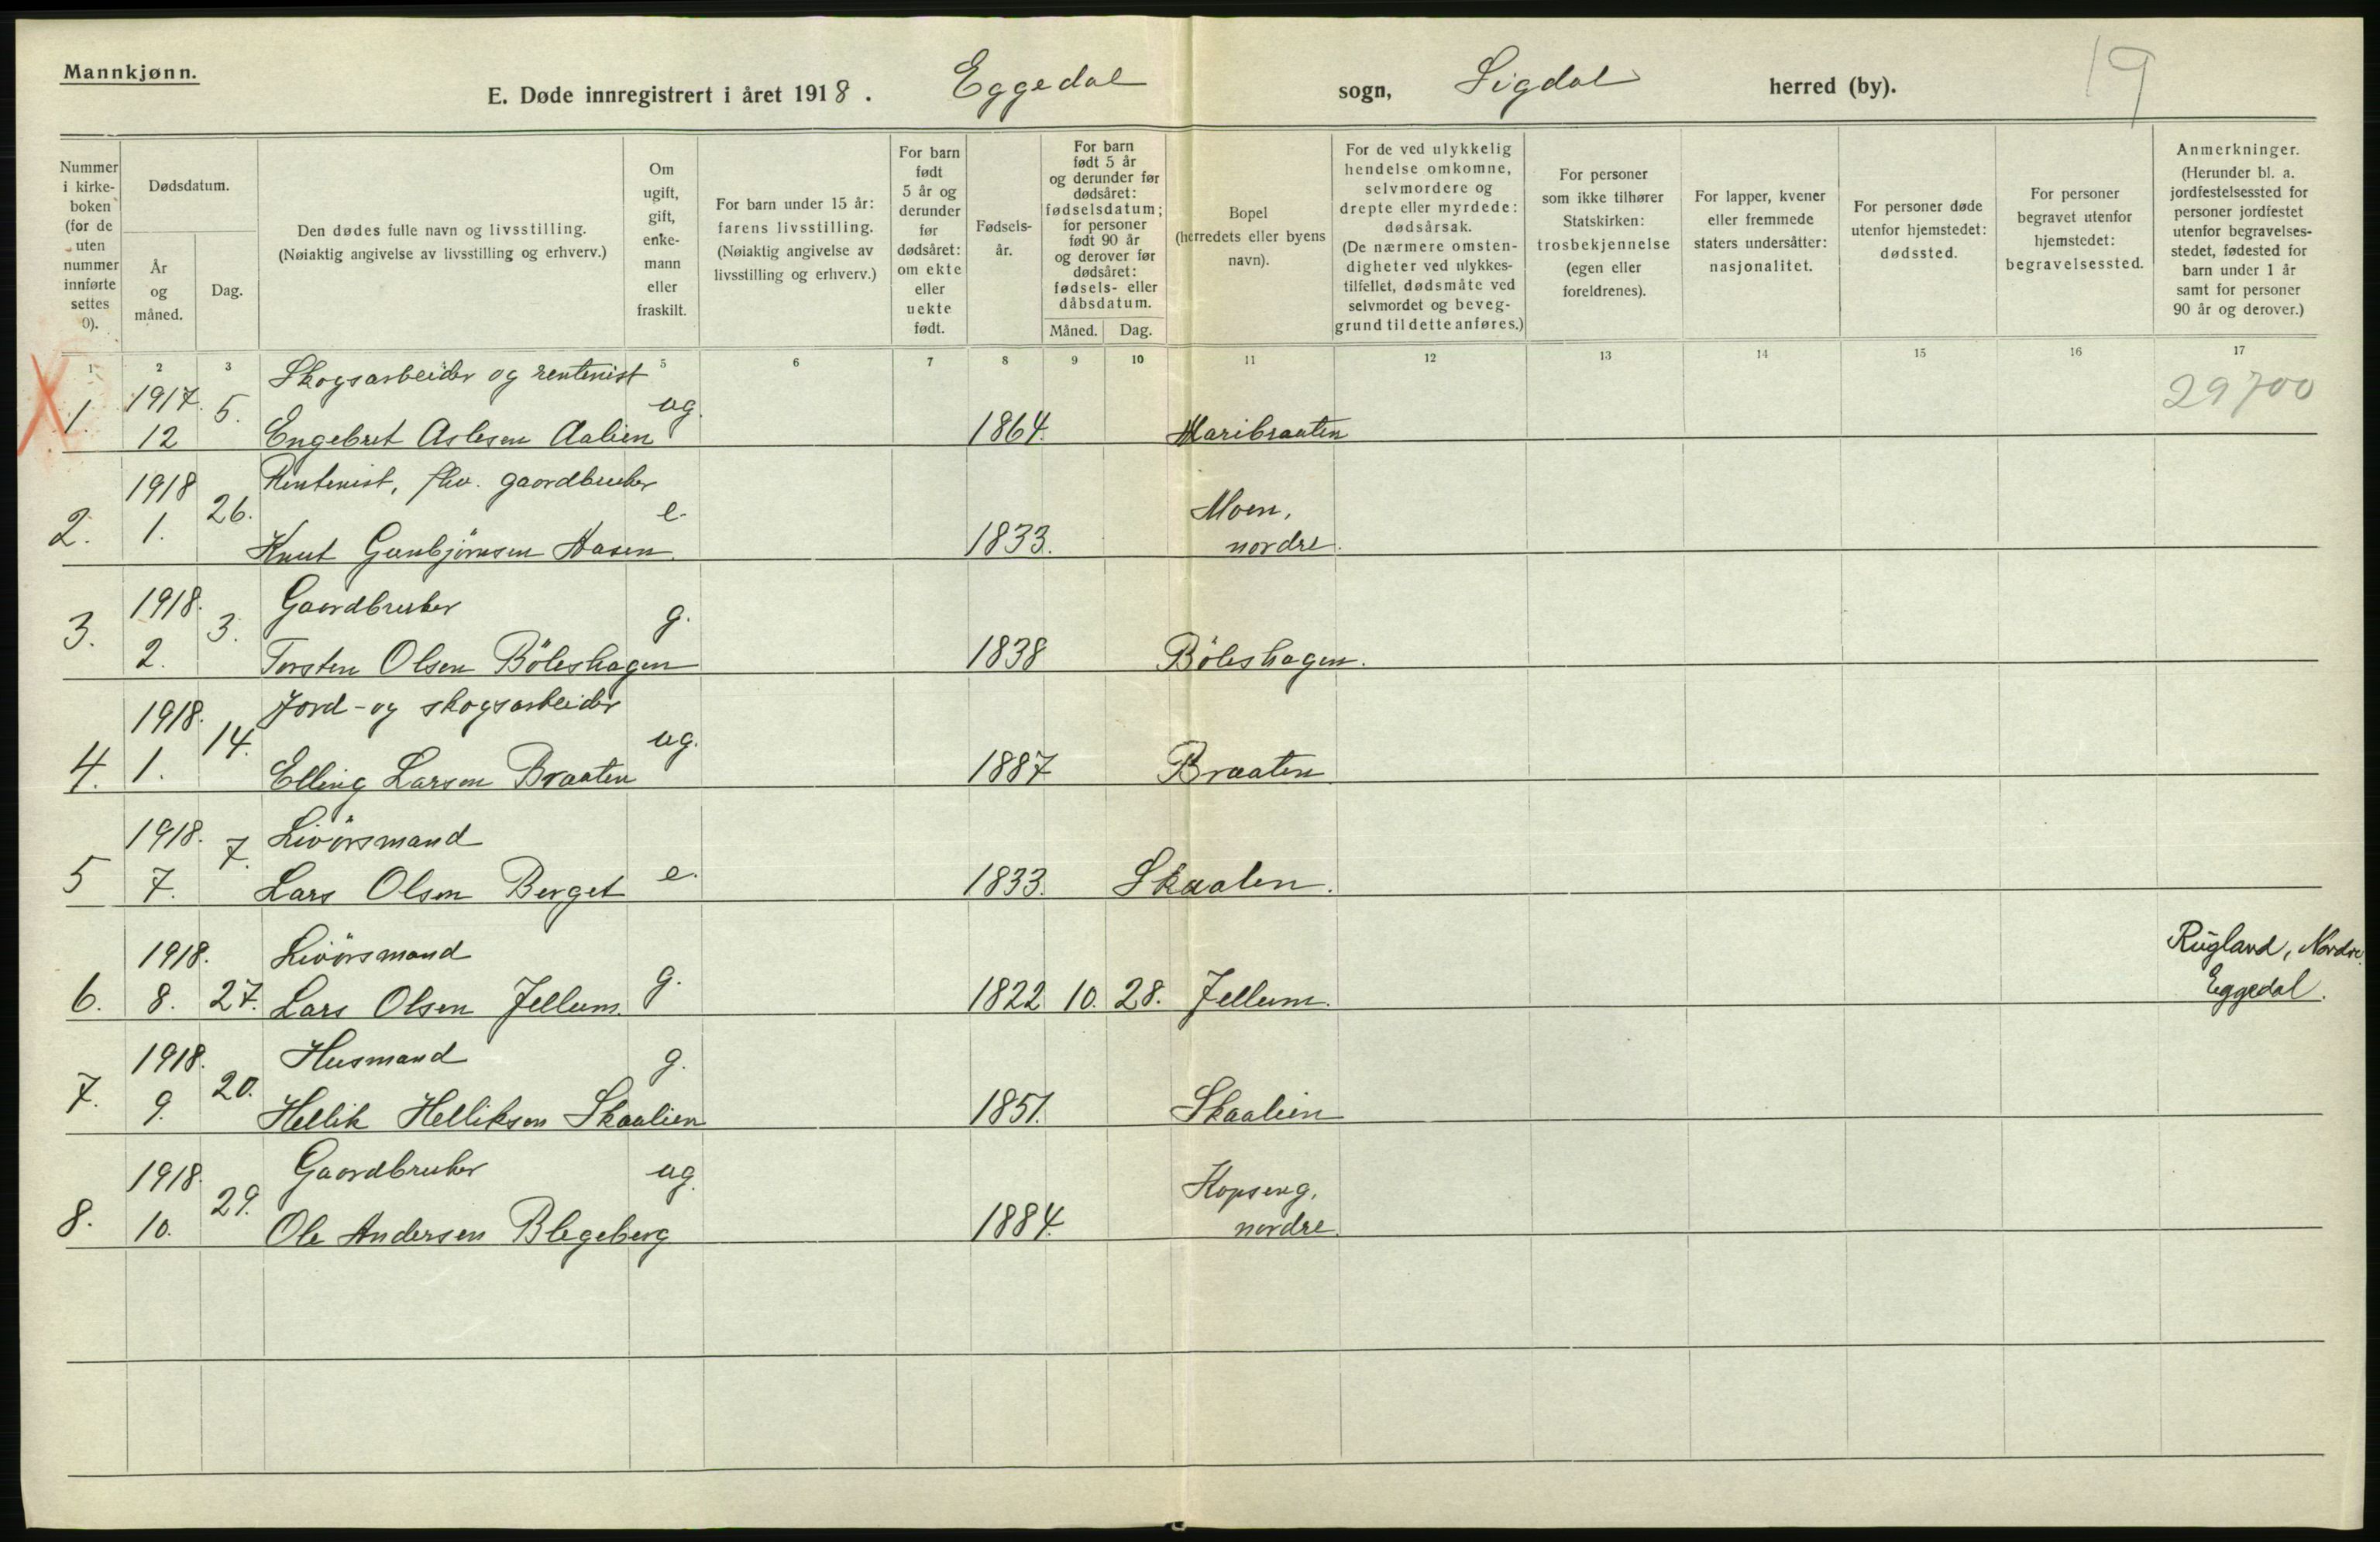 Mannkjønn.
E. Døde innregistrert i året 1918. Eggedal sogn, Sigdal herred (by). 19
Nummer i kirke- boken (for de uten nummer innførte settes 0).
Dødsdatum.
År og måned.
Dag.
Den dødes fulle navn og livsstilling.
(Nøiaktig angivelse av livsstilling og erhverv.)
Om ugift, gift, enke- mann eller fraskilt.
For barn under 15 år: farens livsstilling. (Nøiaktig angivelse av livsstilling og erhverv.)
For barn født 5 år og derunder før dødsåret: om ekte eller uekte født.
Fødsels- år.
For barn født 5 år og derunder før dødsåret: fødselsdatum; for personer født 90 år og derover før dødsåret: fødsels- eller dåbsdatum.
Måned. Dag.
Bopel (herredets eller byens navn).
For de ved ulykkelig hendelse omkomne, selvmordere og drepte eller myrdede: dødsårsak. (De nærmere omsten- digheter ved ulykkes- tilfellet, dødsmåte ved selvmordet og beveg- grund til dette anføres.)
For personer som ikke tilhører Statskirken: trosbekjennelse (egen eller foreldrenes).
For lapper, kvener eller fremmede staters undersåtter: nasjonalitet.
For personer døde utenfor hjemstedet: dødssted.
For personer begravet utenfor hjemstedet: begravelsessted.
Anmerkninger. (Herunder bl. a. jordfestelsessted for personer jordfestet utenfor begravelses- stedet, fødested for barn under 1 år samt for personer 90 år og derover.)
1 2 3 5 6 7 8 9 10 11 12 13 14 15 16 17
X 1917. 5. Skogsarbeider og rentenist ug. 29700
1. 12 Engebret Aslesen Aalien 1864. Maribraaten
1918 26. Rentenist, fhv. gaardbruker e. Moen,
2. 1. Knut Gunbjørnsen Aasen 1833. nordre.
1918. 3. Gaardbruker g.
3. 2. Torsten Olsen Böleshagen 1838 Böleshagen.
1918. 14. Jord- og skogsarbeider ug.
4. 1. Elling Larsen Braaten 1887 Braaten
1918. 7. Livörsmand
5 7. Lars Olsen Berget e. 1833. Skaalen.
1918. Livörsmand g. Rugland, Nordre
6. 8. 27. Lars Olsen Jellum. 1822 10. 28. Jellum. Eggedal.
1918. 20. Husmand g.
7. 9. Hellik Helliksen Skaalien 1851. Skaalien
1918. 29. Gaardbruker ug. Kopseng,
8. 10. Ole Andersen Blegeberg 1884. nordre.